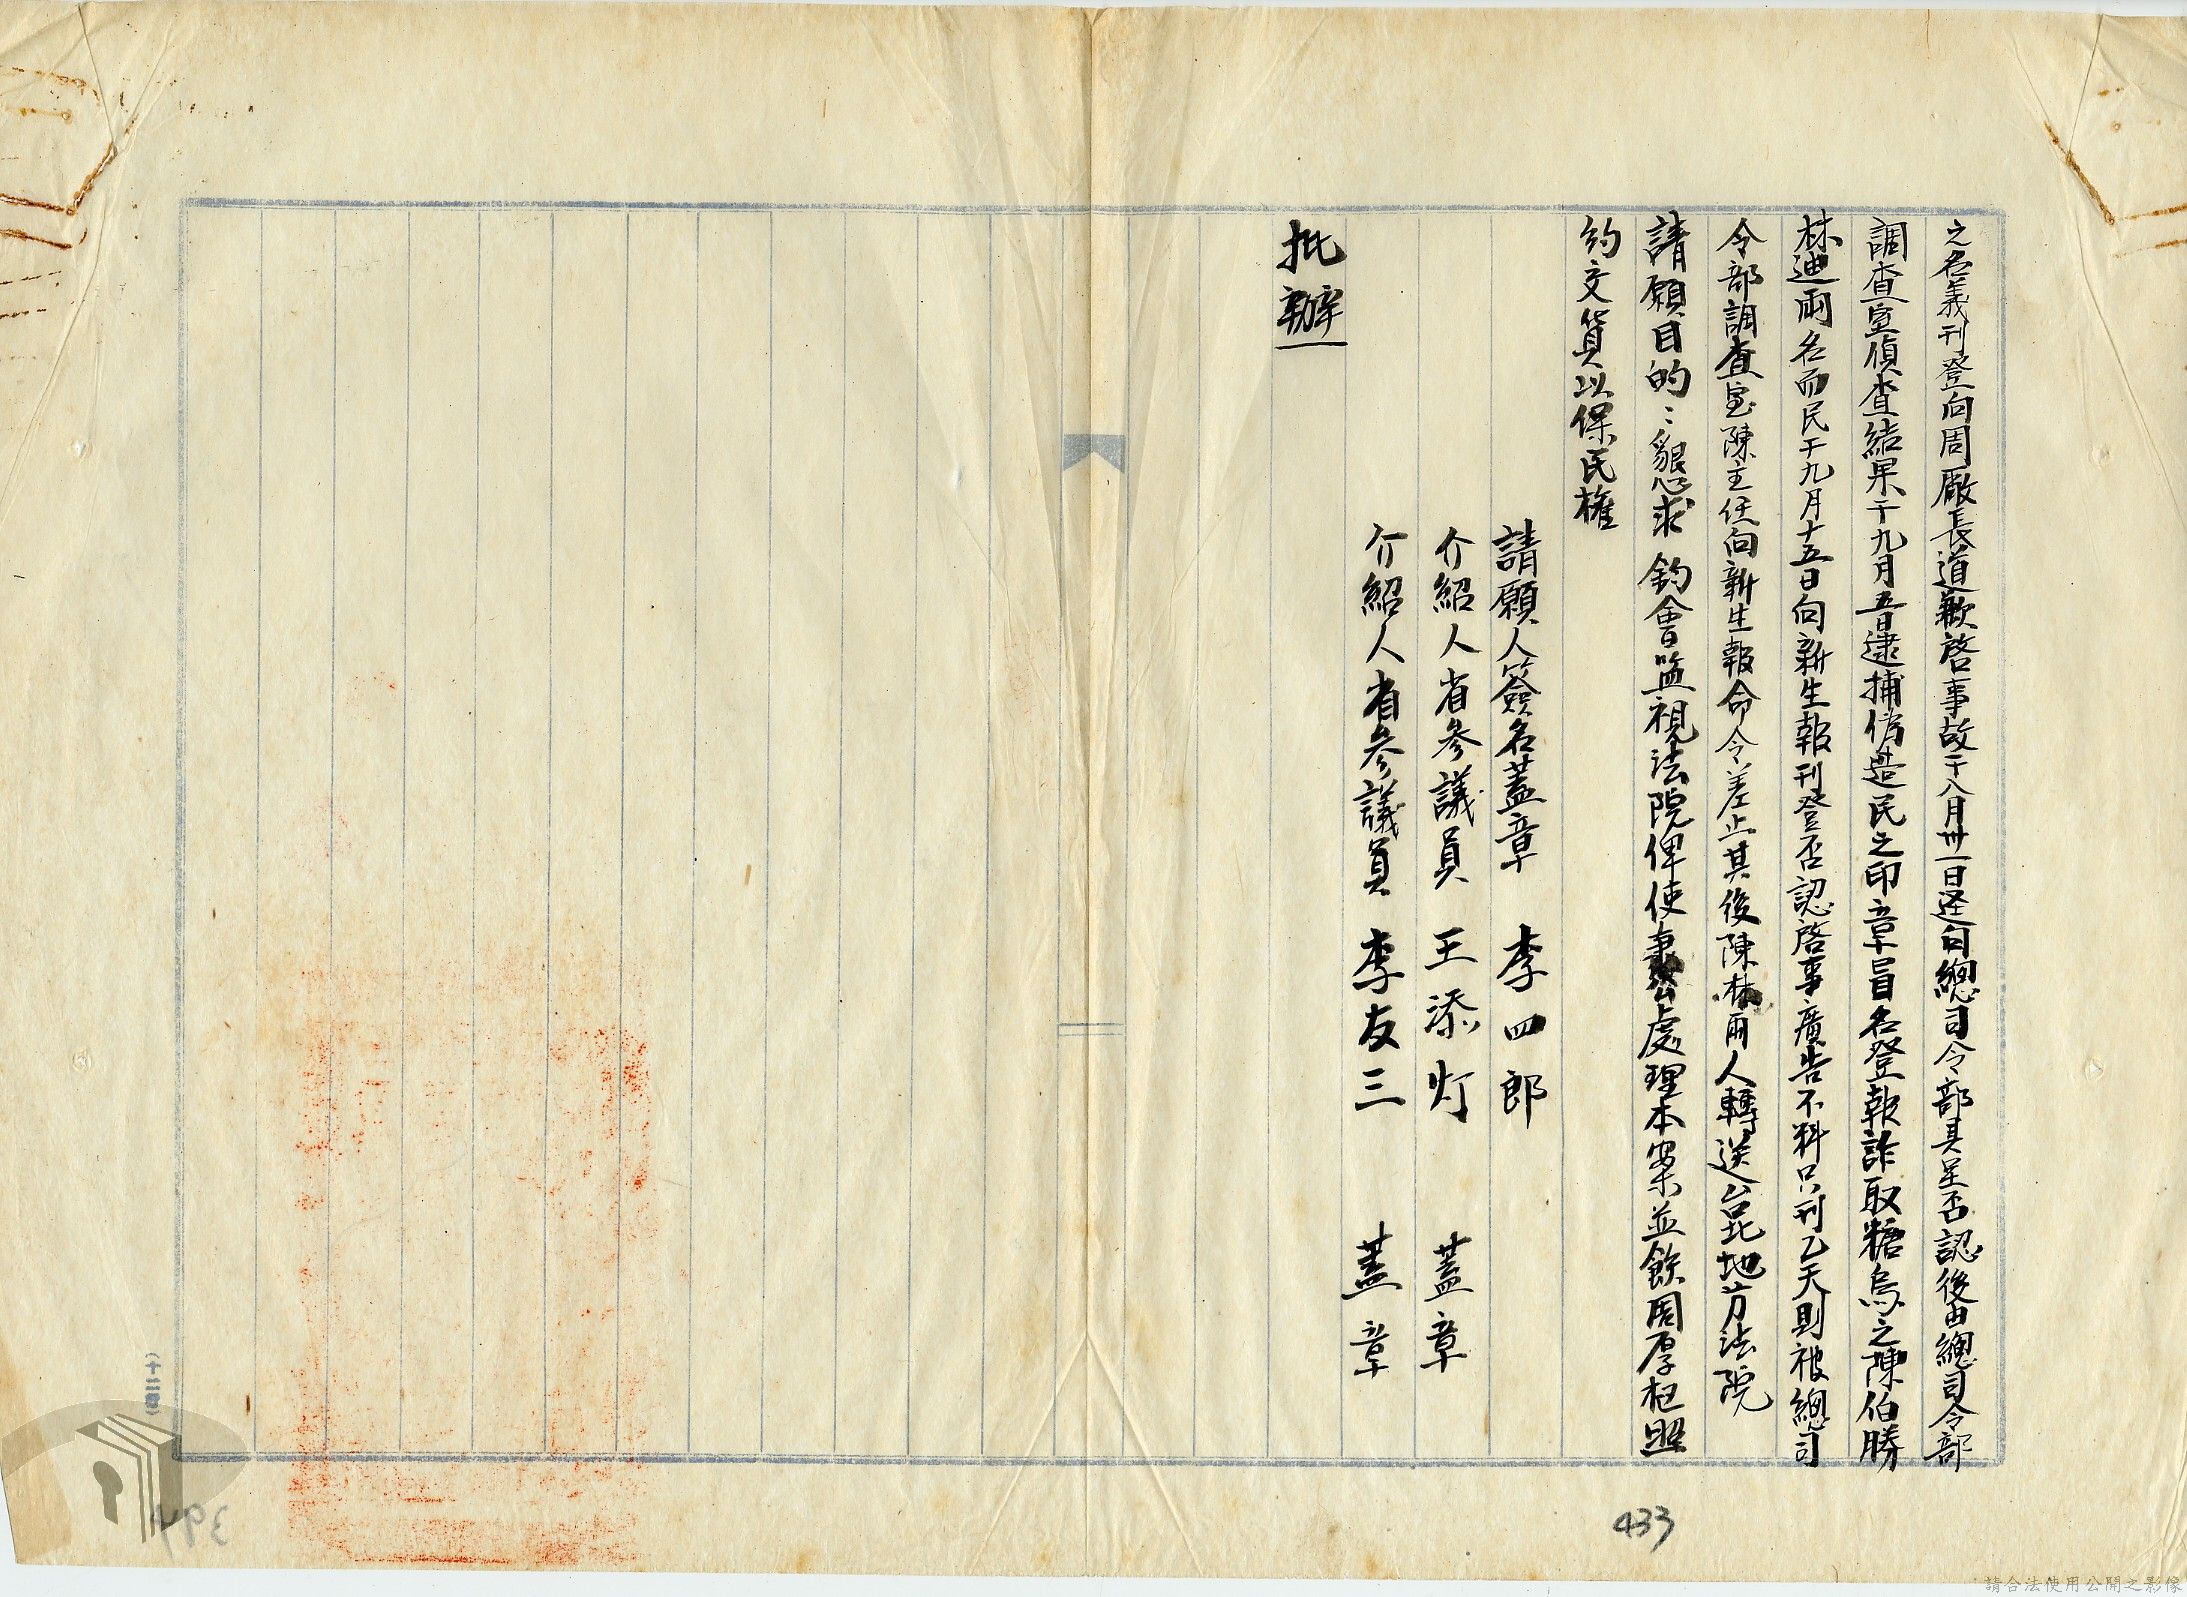 之名義刊登向周廠長道歉啓事故于八月卅一日逕向總司令部具呈否認後由總司令部
調查室偵查結果于九月五日逮捕偽造民之印章冒名登報詐取糖烏之陳伯勝
林迪兩名而民于九月十五日向新生報刊登否認啓事廣告不料只刊乙天則被總司
令部調查室陳主任向新生報命令差止其後陳林兩人轉送台北地方法院
請願目的：懇求 鈞會監視法院俾使秉公處理本案並飭周厚枢照
約交貨以保民權
請願人簽名蓋章 李四郎
介紹人省參議員 王添灯 蓋章
介紹人省參議員 李友三 蓋章
批辦
(十二音)
433
請合法使用公開之影像